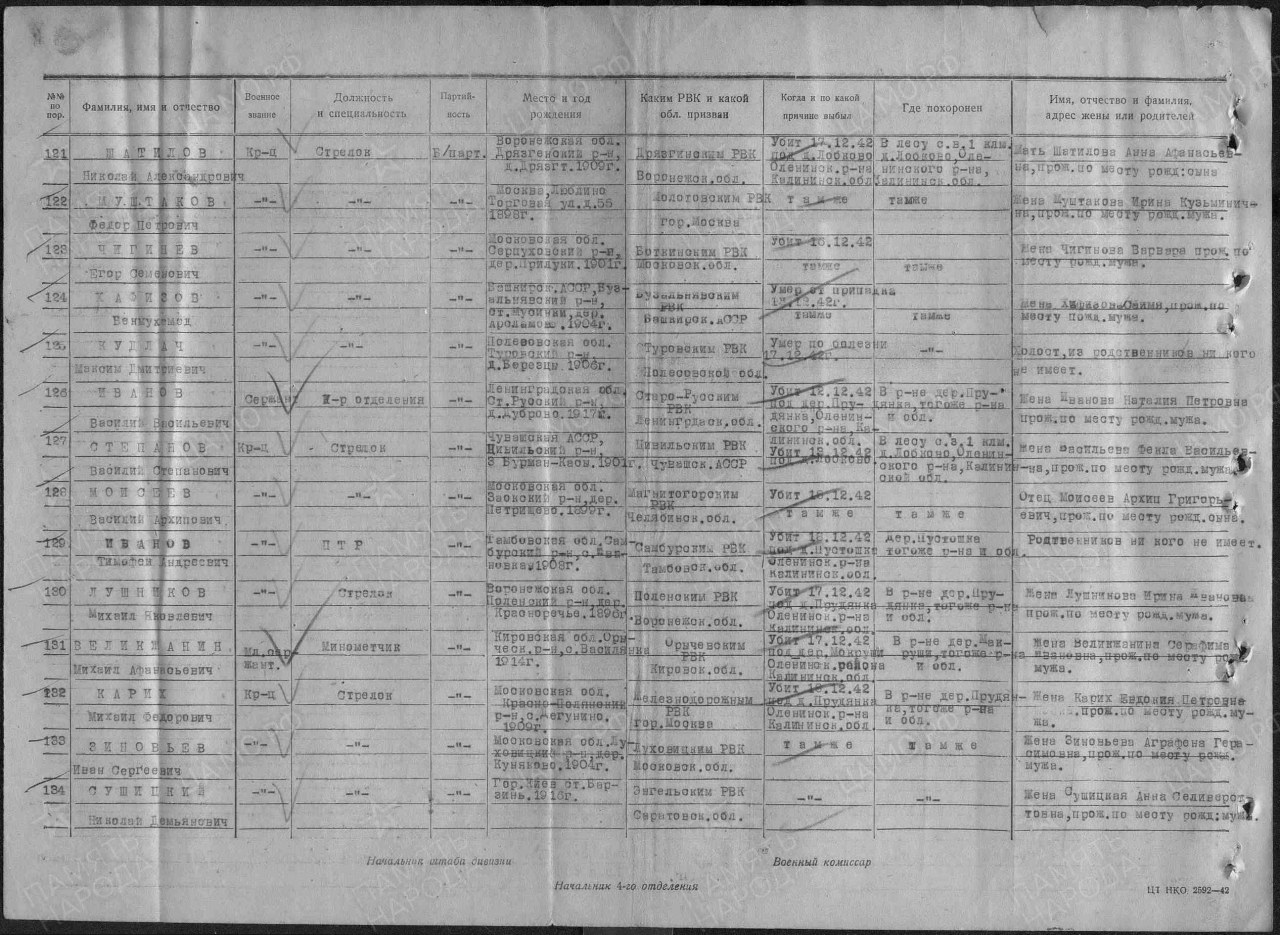 №№ по пор.
Фамилия, имя и отчество
Военное звание
Должность и специальность
Партий- ность
Место и год рождения
Каким РВК и какой обл. призван
Когда и по какой причине выбыл
Где похоронен
Имя, отчество и фамилия, адрес жены или родителей
121 ШАТИЛОВ Кр-ц Стрелок Б/парт. Воронежская обл. Дрязгинским РВК Убит 17.12.42 В лесу с.в.1 клм. Мать Шатилова Анна Афанасьев-
Николай Александрович Дрязгенский р-н, Воронежск.обл. под д.Лобково д.Лобково,Оле- на,прож.по месту рожд:сына
д.Дрязгт.1909г. Оленинск.р-на нинского р-на,
Калининск.обл. Калининск.обл.
122 МУШТАКОВ -"- -"- -"- Москва,Люблино Молотовским РВК также также Жена Муштакова Ирина Кузьминич-
Федор Петрович Торговая ул.д.55 гор.Москва на,прож.по месту рожд.мужа.
1898г.
123 ЧИГИНЕВ -"- -"- -"- Московская обл. Боткинским РВК Убит 16.12.42 Жена Чигинова Варвара прож.по
Егор Семенович Серпуховский р-н, Московск.обл. также также месту рожд.мужа.
дер.Прилуки.1901г.
124 ХАФИЗОВ -"- -"- -"- Башкирск.АССР,Буз- Бузыльнявским РВК Умер от припадка
альнявский р-н, Башкирск.АССР также также месту рожд.мужа.
125 КУДЛАЧ -"- -"- -"- Полесовская обл. Туровским РВК Умер по болезни -"- Холост,из родственников ни кого
Максим Дмитриевич Туровский р-н, Полесовской обл. 17.12.42г. не имеет.
д.Березцы.1906г.
126 ИВАНОВ Сержант К-р отделения -"- Ленинградская обл. Старо-Русским РВК Убит 12.12.42 В р-не дер.Пру- Жена Иванова Наталия Петровна
Василий Васильевич Ст.Русский р-н, Ленингрдаск.обл. под дер.Пру- дянка,тогоже р-на прож.по месту рожд.мужа.
д.Дуброво.1917г. дянка,Оленин- и обл.
ского р-на,Ка-
лининск.обл.
127 СТЕПАНОВ Кр-ц Стрелок -"- Чувашская АССР, Цивильским РВК Убит 12.12.42 В лесу с.з.1 клм. Жена Васильева Фекла Васильев-
Василий Степанович Цивильский р-н, Чувашск.АССР под д.Лобково. д.Лобково,Оленин- на,прож.по месту рожд.мужа
З Бурман-Касы.1901г. ского р-на,Калинин-
ской обл.
128 МОИСЕЕВ -"- -"- -"- Московская обл. Магнитогорским РВК Убит 18.12.42 Отец Моисеев Архип Григорь-
Василий Архипович Заокский р-н,дер. Челябинск.обл. также также евич,прож.по месту рожд.сына.
Петрищево.1899г.
129 ИВАНОВ -"- ПТР -"- Тамбовская обл.Сам- Самбурским РВК Убит 18.12.42 дер.Пустошка Родтвенников ни кого не имеет.
Тимофей Андреевич бурский р-н,с. Тамбовск.обл. под д.Пустошка тогоже р-на и обл.
1908г. Оленинск.р-на
Калининск.обл.
130 ЛУШНИКОВ -"- Стрелок -"- Воронежская обл. Поленским РВК Убит 17.12.42 В р-не дер.Пру- Жена Лушникова Ирина Ивановна
Михаил Яковлевич Поленский р-н,дер. Воронежск.обл. под д.Прудянка дянка,тогоже р-на прож.по месту рожд.мужа.
Красноречье.1896г. Оленинск.р-на и обл.
Калининск.обл.
131 ВЕЛИКЖАНИН Мл.сер- Минометчик -"- Кировская обл.Орич- Оричевским РВК Убит 17.12.42 В р-не дер.Мок- Жена Великжанина Серафима
Михаил Афанасьевич жант. ческ.р-н,с.Василянка Кировск.обл. под дер.Мокруши руши,тогоже р-на Ивановна,прож.по месту рожд
1914г. Оленинск.района и обл. мужа.
Калининск.обл.
132 КАРИХ Кр-ц Стрелок -"- Московская обл. Железнодорожным РВК Убит 18.12.42 В р-не дер.Прудян- Жена Карих Евдокия Петровна
Михаил Федорович Красно-Полянский гор.Москва под д.Прудянка ка,тогоже р-на прож.по месту рожд.му-
р-н,с.Дегунино. Оленинск.р-на и обл. жа.
1909г. Калининск.обл.
133 ЗИНОВЬЕВ -"- -"- -"- Московская обл.Лу- Луховицким РВК также также Жена Зиновьева Аграфена Гера-
Иван Сергеевич ховицкий р-н,дер. Московск.обл. симовна,прож.по месту рожд.
Куняково.1904г. мужа.
134 СУШИЦКИЙ -"- -"- -"- Гор.Киев ст.Бар- Энгельским РВК -"- -"- Жена Сушицкая Анна Селиверст-
Николай Демьянович зинь.1916г. Саратовск.обл. товна,прож.по месту рожд:мужа.
Начальник штаба дивизии
Военный комиссар
Начальник 4-го отделения
ЦТ НКО 2592—42
ПАМЯТЬ НАРОДА
ЦАМО.РФ